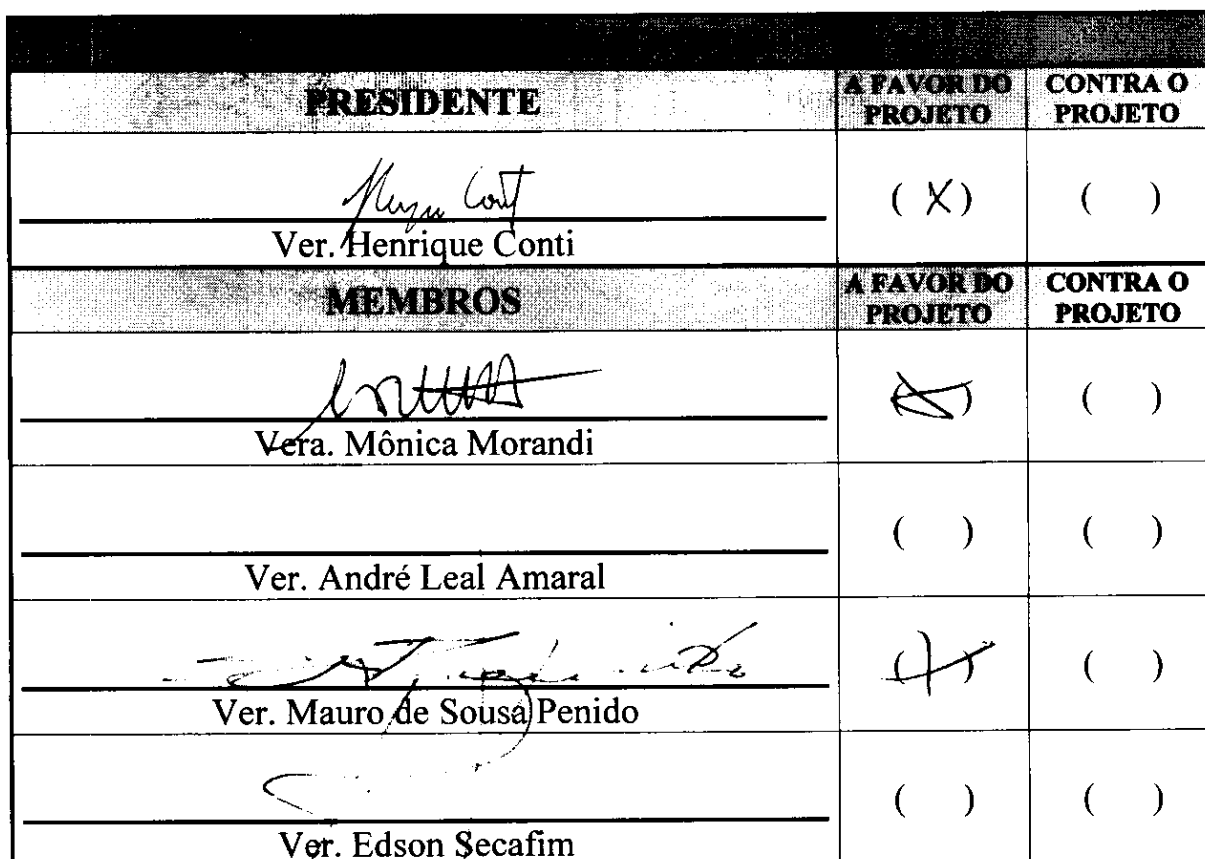 PRESIDENTE A FAVOR DO PROJETO CONTRA O PROJETO
( X ) ( )
Ver. Henrique Conti
MEMBROS A FAVOR DO PROJETO CONTRA O PROJETO
(X) ( )
Vera. Mônica Morandi
( ) ( )
Ver. André Leal Amaral
(X) ( )
Ver. Mauro de Sousa Penido
( ) ( )
Ver. Edson Secafim